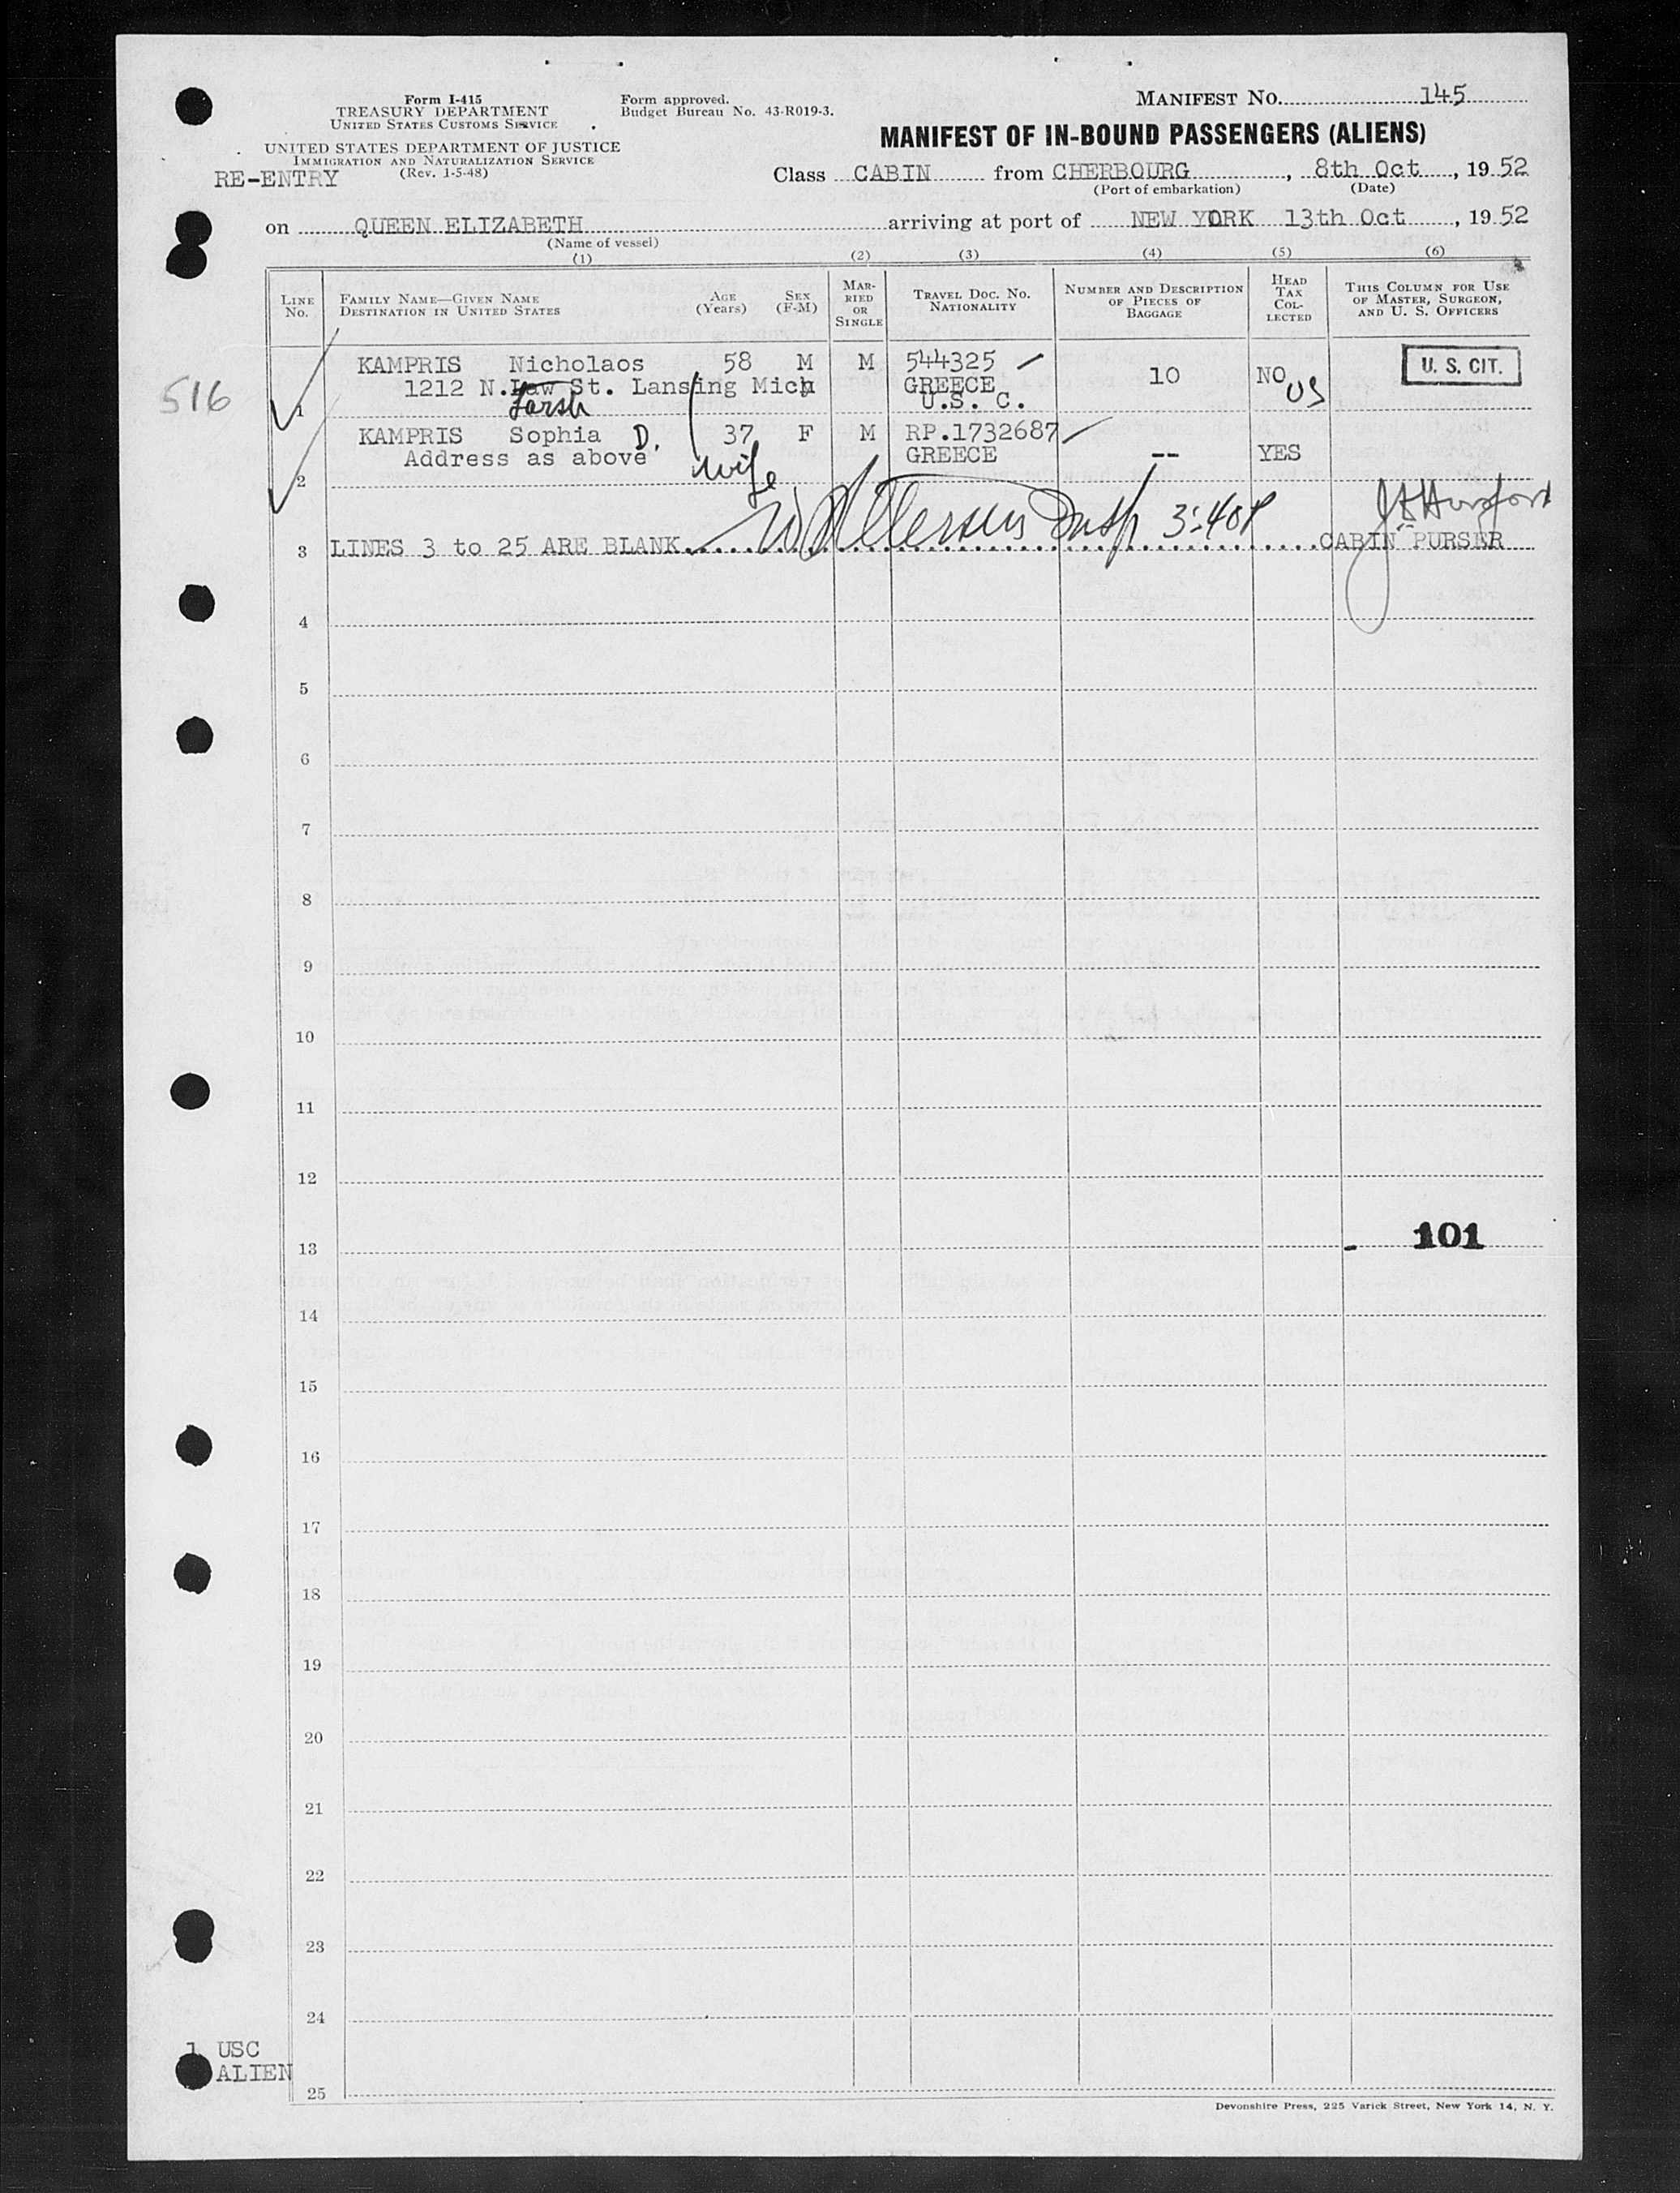 Form I-415
TREASURY DEPARTMENT
UNITED STATES CUSTOMS SERVICE
Form approved.
Budget Bureau No. 43-R019-3.
MANIFEST No. 145
UNITED STATES DEPARTMENT OF JUSTICE
IMMIGRATION AND NATURALIZATION SERVICE
(Rev. 1-5-48)
RE-ENTRY
MANIFEST OF IN-BOUND PASSENGERS (ALIENS)
Class CABIN from CHERBOURG, 8th Oct, 1952
(Port of embarkation) (Date)
on QUEEN ELIZABETH arriving at port of NEW YORK 13th Oct, 1952
(Name of vessel)
(1) (2) (3) (4) (5) (6)
LINE No.
FAMILY NAME—GIVEN NAME
DESTINATION IN UNITED STATES
AGE (Years)
SEX (F-M)
MARRIED OR SINGLE
TRAVEL DOC. NO.
NATIONALITY
NUMBER AND DESCRIPTION OF PIECES OF BAGGAGE
HEAD TAX COLLECTED
THIS COLUMN FOR USE OF MASTER, SURGEON, AND U. S. OFFICERS
516
1 KAMPRIS Nicholaos 58 M M 544325 10 NO US U. S. CIT.
1212 N. Law St. Lansing Mich GREECE
U.S. C.
2 KAMPRIS Sophia D. 37 F M RP.1732687 -- YES
Address as above wife GREECE
Insp 3:40P
3 LINES 3 to 25 ARE BLANK CABIN PURSER
4
5
6
7
8
9
10
11
12
13 101
14
15
16
17
18
19
20
21
22
23
24
1 USC
ALIEN
25
Devonshire Press, 225 Varick Street, New York 14, N. Y.